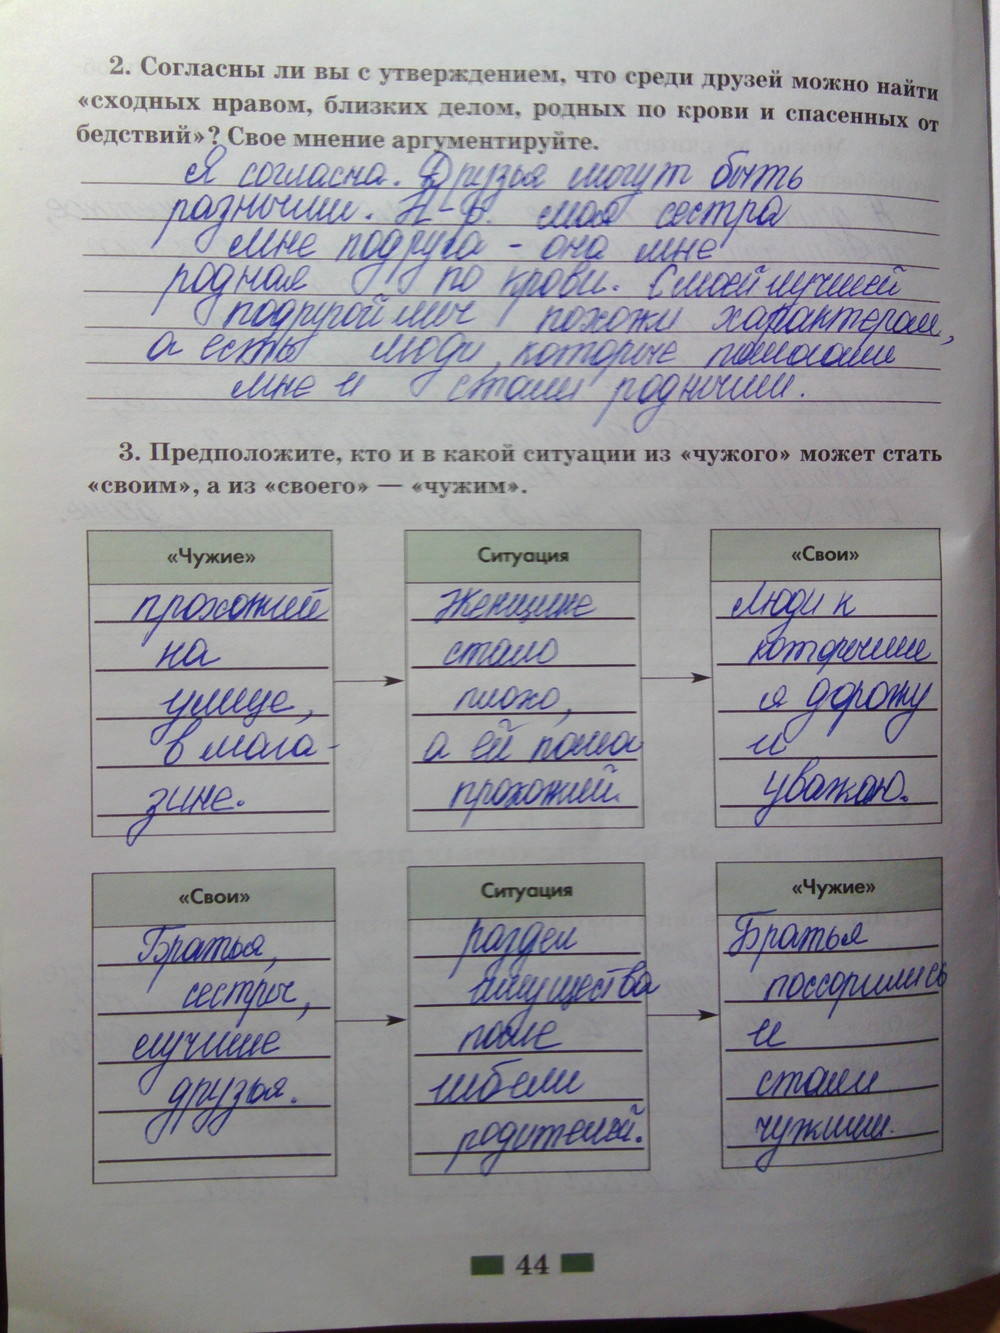 2. Согласны ли вы с утверждением, что среди друзей можно найти
«сходных нравом, близких делом, родных по крови и спасенных от
бедствий»? Свое мнение аргументируйте.
Я согласна. Друзья могут быть
разными. Н-р. моя сестра
мне подруга - она мне
родная по крови. С моей лучшей
подругой мы похожи характерам,
а есть люди, которые помогали
мне и стали родными.
3. Предположите, кто и в какой ситуации из «чужого» может стать
«своим», а из «своего» — «чужим».
«Чужие»
прохожий
на
улице,
в мага-
зине.
Ситуация
Женщине
стало
плохо,
а ей помог
прохожий.
«Свои»
Люди к
которыми
я дорожу
и
уважаю.
«Свои»
Братья,
сестры,
лучшие
друзья.
Ситуация
раздел
имущества
после
гибели
родителей.
«Чужие»
Братья
поссорились
и
стали
чужими.
44